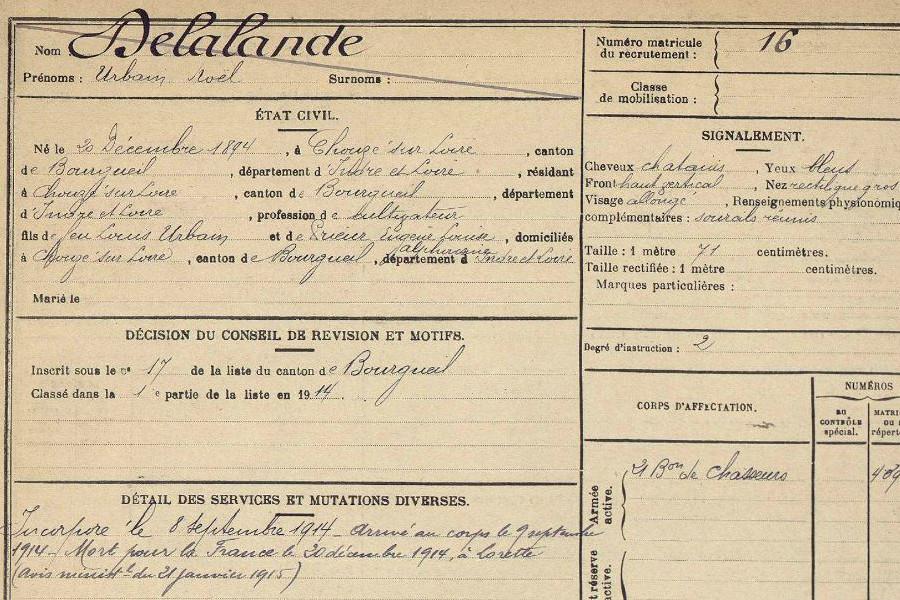 Nom Delalande
Prénoms : Urbain Noël Surnoms :
ÉTAT CIVIL.
Né le 20 Décembre 1894, à Chouzé sur Loire, canton
de Bourgueil, département d'Indre et Loire, résidant
à Chouzé sur Loire, canton de Bourgueil, département
d'Indre et Loire, profession de cultivateur
fils de feu Louis Urbain et de Prieur Eugénie Louise, domiciliés
alphonsine
à Chouzé sur Loire, canton de Bourgueil, département d Indre et Loire
Marié le
DÉCISION DU CONSEIL DE REVISION ET MOTIFS.
Inscrit sous le n° 17 de la liste du canton de Bourgueil
Classé dans la 1e partie de la liste en 1914.
DÉTAIL DES SERVICES ET MUTATIONS DIVERSES.
Incorporé le 8 septembre 1914 - Arrivé au corps le 9 septembre
1914 - Mort pour la France le 20 décembre 1914, à Lorette
(avis ministel du 21 janvier 1915)
Numéro matricule
du recrutement : 16
Classe
de mobilisation :
SIGNALEMENT.
Cheveux chatains, Yeux bleus
Front haut vertical, Nez rectiligne gros
Visage allongé, Renseignements physionomiq
complémentaires : sourcils réunis
Taille : 1 mètre 71 centimètres.
Taille rectifiée : 1 mètre centimètres.
Marques particulières :
Degré d'instruction : 2
CORPS D'AFFECTATION.
NUMÉROS
AU
CONTRÔLE
spécial.
MATRI
OU
répert
Armée
active.
21 Bon de Chasseurs
409
t réserve
ctive.